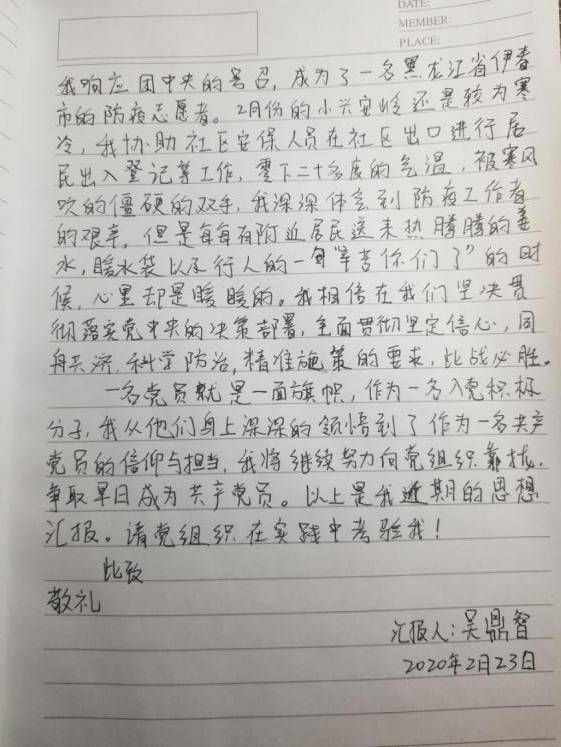 DATE:
MEMBER:
PLACE:
我响应团中央的号召，成为了一名黑龙江省伊春
市的防疫志愿者。2月份的小兴安岭还是较为寒
冷，我协助社区安保人员在社区出口进行居
民出入登记等工作，零下二十多度的气温，被寒风
吹的僵硬的双手，我深深体会到防疫工作者
的艰辛，但是每每有附近居民送来热腾腾的姜
水，暖水袋以及行人的一句“辛苦你们了”的时
候，心里却是暖暖的。我相信在我们坚决贯
彻落实党中央的决策部署，全面贯彻坚定信心，同
舟共济，科学防治，精准施策的要求，此战必胜。
一名党员就是一面旗帜，作为一名入党积极
分子，我从他们身上深深的领悟到了作为一名共产
党员的信仰与担当，我将继续努力向党组织靠拢，
争取早日成为共产党员。以上是我近期的思想
汇报。请党组织在实践中考验我！
此致
敬礼
汇报人：吴鼎智
2020年2月23日